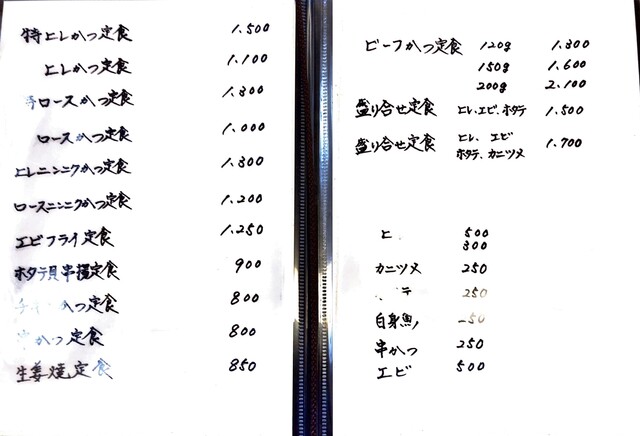 特ヒレかつ定食 1.500
ヒレかつ定食 1.100
ロースかつ定食 1.300
ロースかつ定食 1.000
ヒレニンニクかつ定食 1.300
ロースニンニクかつ定食 1.200
エビフライ定食 1.250
ホタテ貝串揚定食 900
かつ定食 800
かつ定食 800
生姜焼定食 850
ビーフかつ定食 120g 1.300
150g 1.600
200g 2.100
盛り合せ定食 ヒレ、エビ、ホタテ 1.500
盛り合せ定食 ヒレ、エビ 1.700
ホタテ、カニツメ
ヒ 500
300
カニツメ 250
テ 250
白身魚 50
串かつ 250
エビ 500